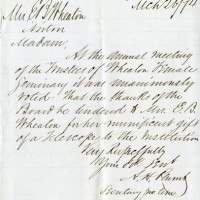 Mch 26/74
Mrs E B Wheaton
Norton
Madam,
At the annual meeting
of the Trustees of Wheaton Female
Seminary it was unanimously
voted: That the thanks of the
Board be tendered to Mrs. E. B.
Wheaton for her munificent gift
of a Telescope to the Institution
Very Respectfully
Your Obt Servt
A. H. Plumb
Secretary pro tem